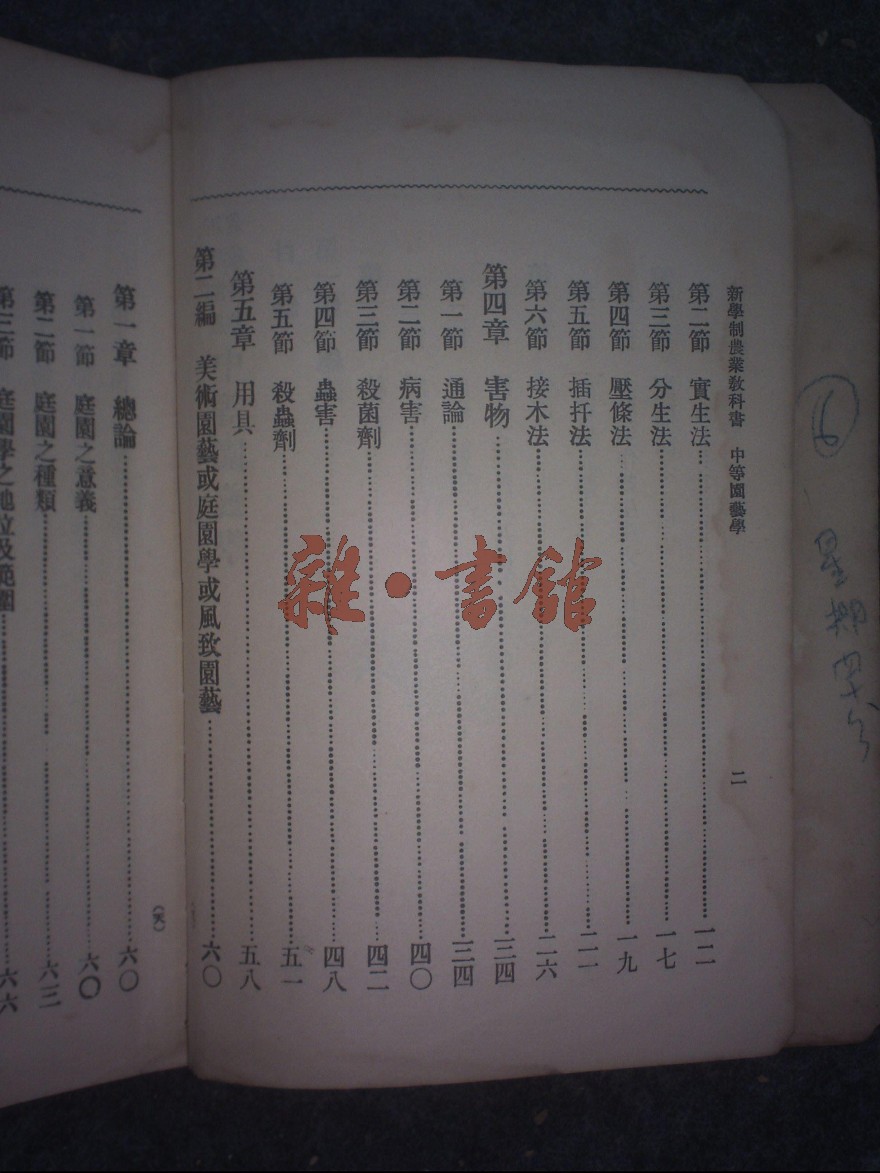 新學制農業教科書 中等園藝學 二
第二節 實生法 一二
第三節 分生法 一七
第四節 壓條法 一九
第五節 插扦法 二一
第六節 接木法 二六
第四章 害物 三四
第一節 通論 三四
第二節 病害 四〇
第三節 殺菌劑 四二
第四節 蟲害 四八
第五節 殺蟲劑 五一
第五章 用具 五八
第二編 美術園藝或庭園學或風致園藝 六〇
第一章 總論 六〇
第一節 庭園之意義 六〇
第二節 庭園之種類 六三
第三節 庭園學之地位及範圍 六六
雜·書館
6
星期